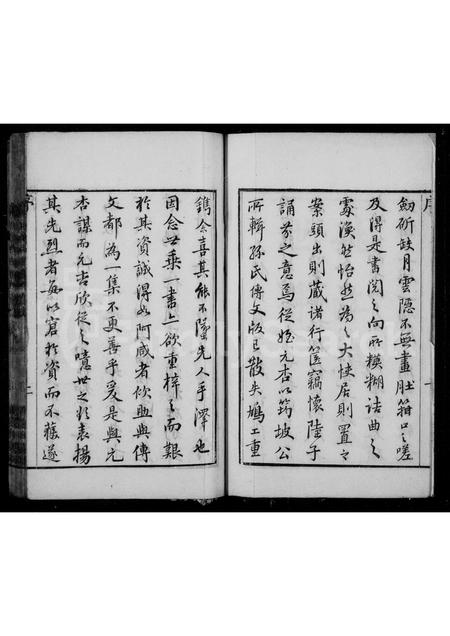 序
劔斫鼓月雲隱不無畫肚箝口之嗟
及得是書閱之向所糢糊詰曲之
處渙然怡然為之大快居則置之
案頭出則藏諸行篋竊懷陸子
誦芬之意焉從姪元杏以筠坡公
所輯孫氏傳文版已散失鳩工重
鐫余喜其能不墜先人手澤也
因念世乘一書亦欲重梓之而艱
於其資誠得如阿咸者佽助與傳
文都為一集不更善乎爰是與元
杏謀而元杏欣從之噫世之於表揚
其先烈者每以窘於資而不獲遂
序
二